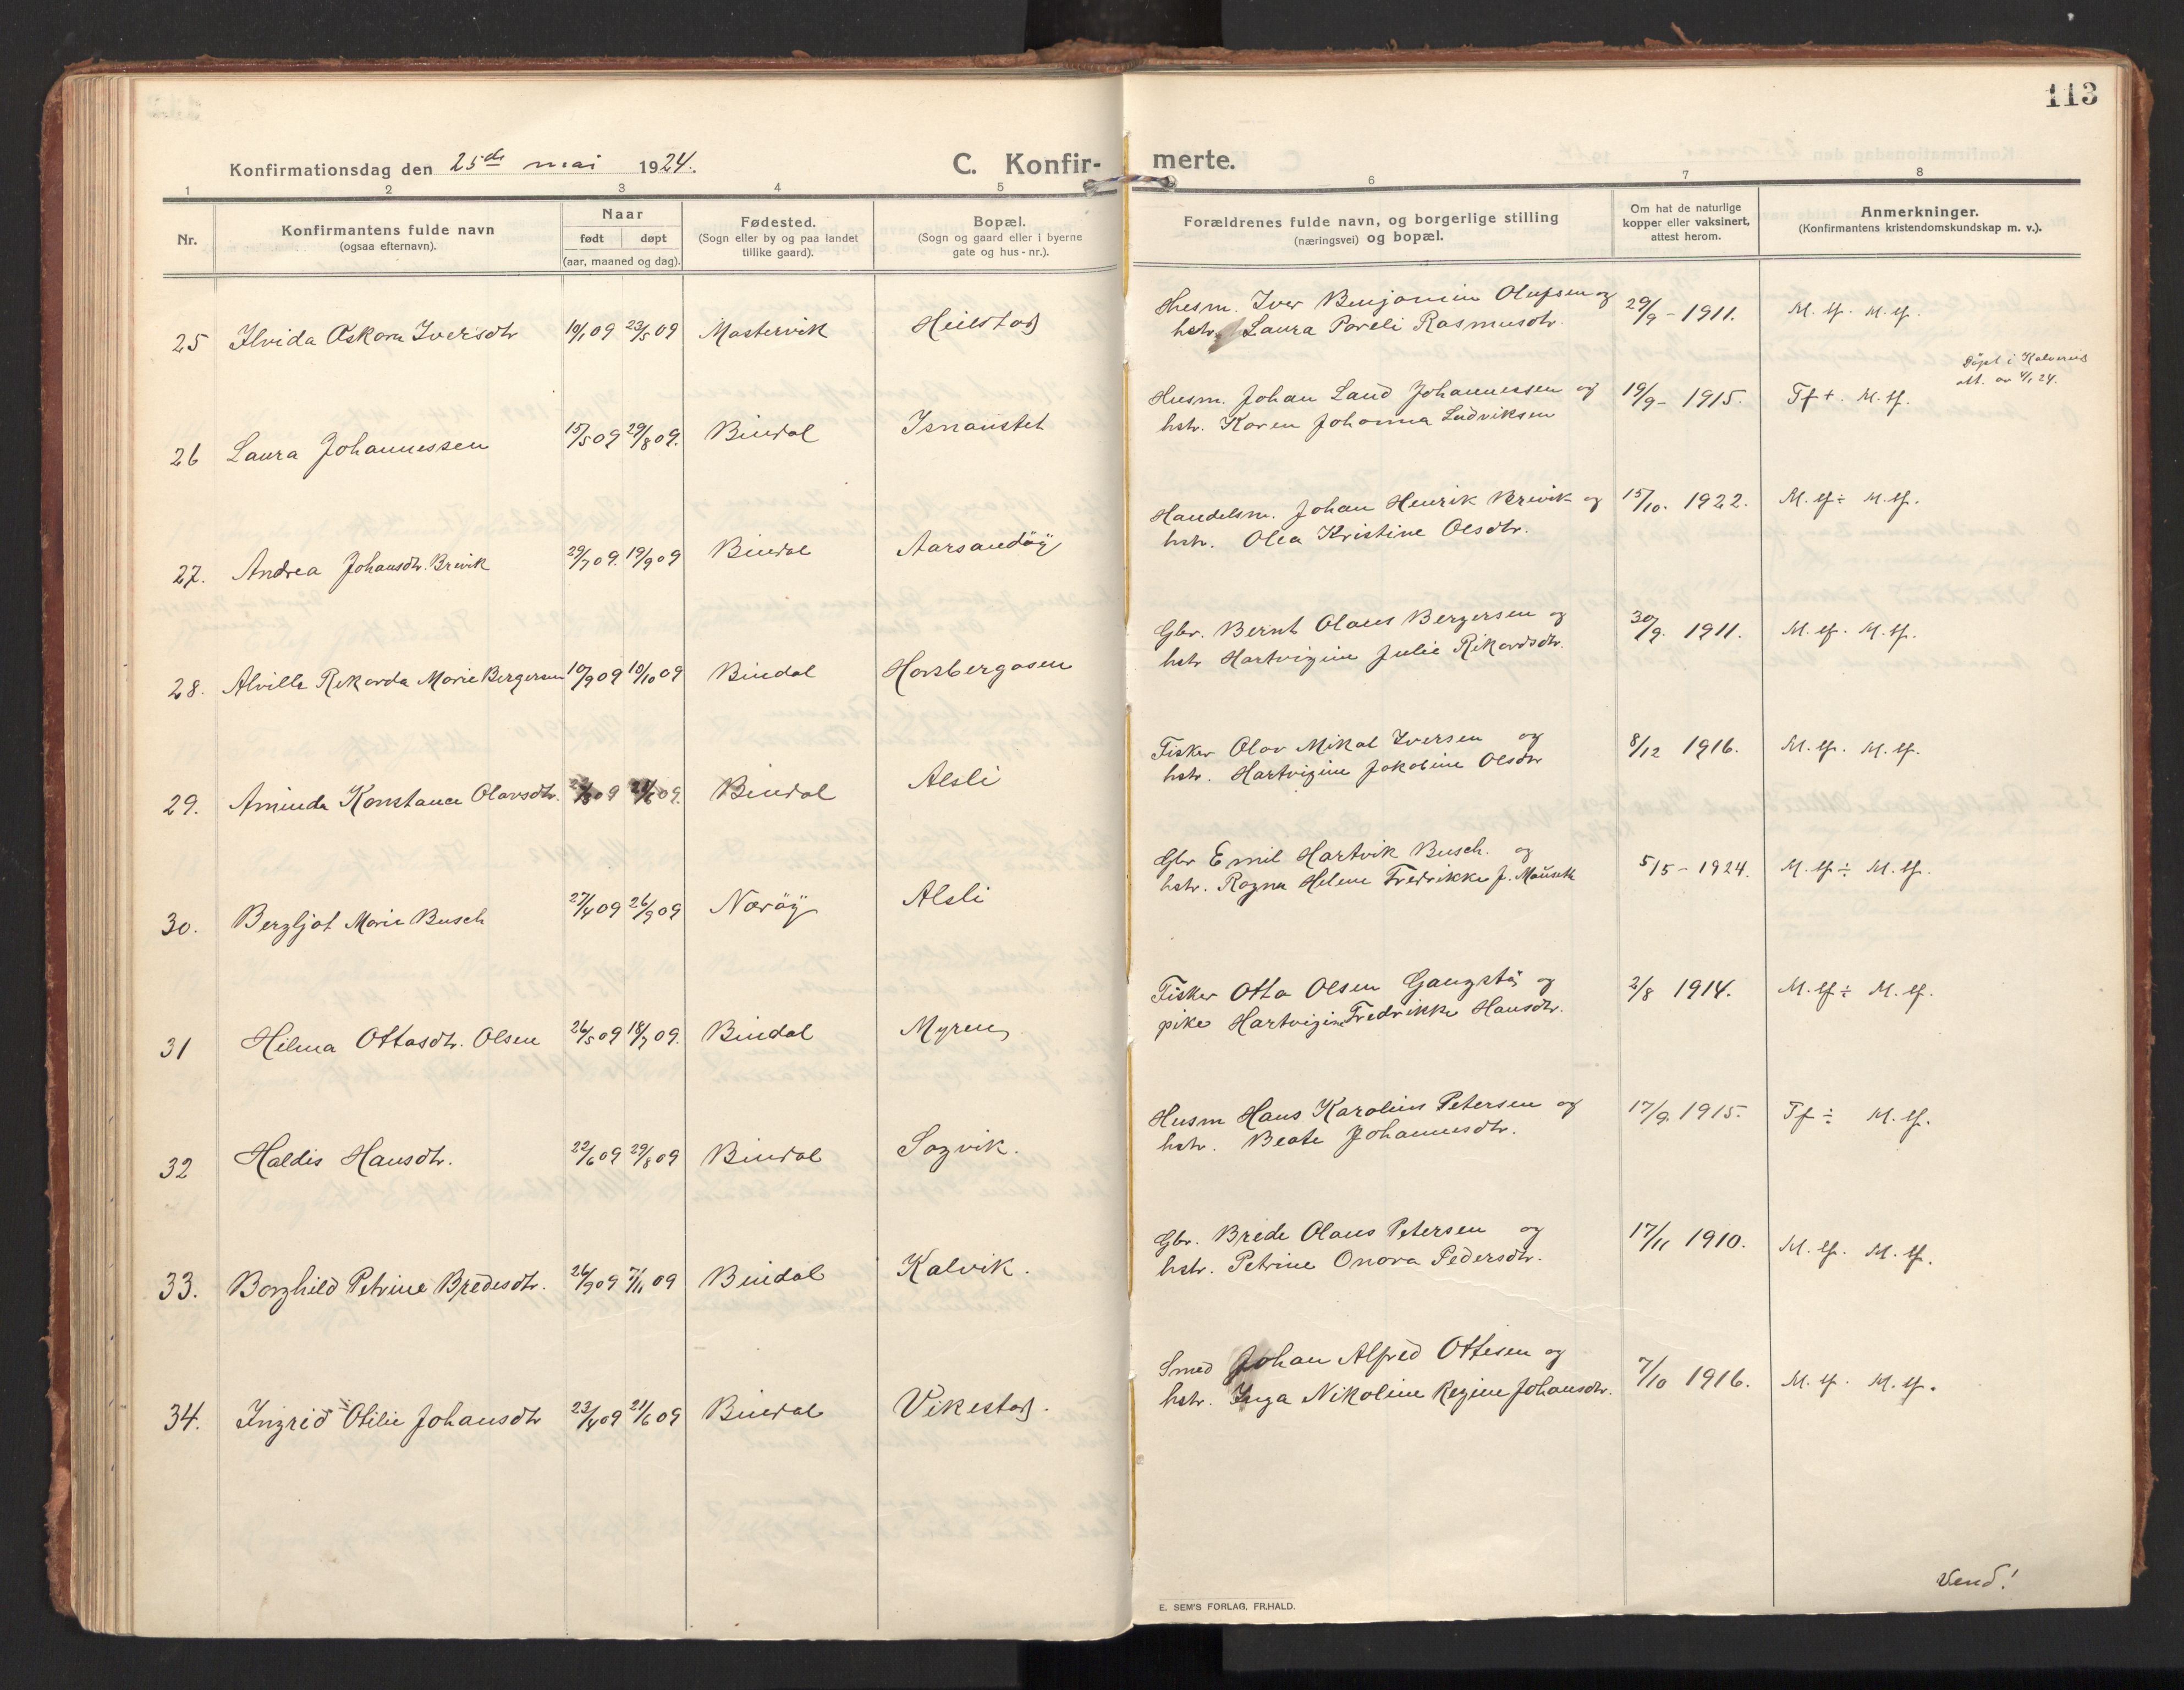 113
Konfirmationsdag den 25de mai 1924.
C. Konfir- merte.
1 2 3 4 5 6 7 8
Nr.
Konfirmantens fulde navn
(ogsaa efternavn).
Naar
født døpt
(aar, maaned og dag).
Fødested.
(Sogn eller by og paa landet
tillike gaard).
Bopæl.
(Sogn og gaard eller i byerne
gate og hus-nr.).
Forældrenes fulde navn, og borgerlige stilling
(næringsvei) og bopæl.
Om hat de naturlige
kopper eller vaksinert,
attest herom.
Anmerkninger.
(Konfirmantens kristendomskundskap m. v.).
Husm. Iver Benjamin Olufsen og 29/9 - 1911. M. tf. M. tf.
25 Ilvida Oskara Iversdtr 10/1 09 23/5 09 Mastervik Heilstad hstr. Laura Pareli Rasmusdtr.
Døpt i Kalvereid
att. av 4/1 24.
Husm. Johan Laud Johannessen og 19/9 - 1915. Tf +. M. tf.
26 Laura Johannessen 15/5 09 29/8 09. Bindal Isnaustet hstr. Karen Johanna Ludviksen
Handelsm. Johan Henrik Brevik og 15/10. 1922. M. tf ÷ M. tf.
27. Andrea Johansdtr. Brevik 29/7 09. 19/9 09 Bindal Aarsandöy hstr. Olea Kristine Olsdtr.
Gbr. Bernt Olaus Bergersen og 30/9. 1911. M. tf. M. tf.
28. Alvilla Rikarda Marie Bergersen 10/9 09 10/10 09 Bindal Horsbergåsen hstr Hartvigine Julie Rikardsdtr.
Fisker Olav Mikal Iversen og 8/12 1916. M. tf. M. tf.
29. Aminda Konstance Olavsdtr. 09 09. Bindal Alsli hstr. Hartvigine Jakobine Olsdtr
Gbr Emil Hartvik Busch. og 5/5 - 1924. M. tf ÷ M. tf.
30. Bergljot Marie Busch 27/4 09 26/9 09 Nærøy Alsli hstr. Ragna Helene Fredrikke f. Mausett
Fisker Otto Olsen Gangstø og 2/8 1914. M. tf ÷ M. tf.
31 Hilma Ottasdtr. Olsen 26/5 09 18/7 09. Bindal Myren pike Hartvigine Fredrikke Hansdtr.
Husm Hans Karolius Petersen og 17/9. 1915. Tf ÷ M. tf.
32 Haldis Hansdtr. 22/6 09 29/8 09 Bindal Sagvik. hstr. Beate Johannesdtr.
Gbr. Brede Olaus Petersen og 17/11 1910. M. tf. M. tf.
33. Borghild Petrine Bredesdtr. 26/9 09 7/11 09 Bindal Kalvik. hstr. Petrine Onora Pedersdtr.
Smed Johan Alfred Ottesen og 7/10 1916. M. tf. M. tf.
34. Ingrid Otilie Johansdtr 23/4 09 21/6 09 Bindal Vikestad. hstr. Inga Nikoline Regine Johansdtr.
Vend!
E. SEM'S FORLAG, FR.HALD.